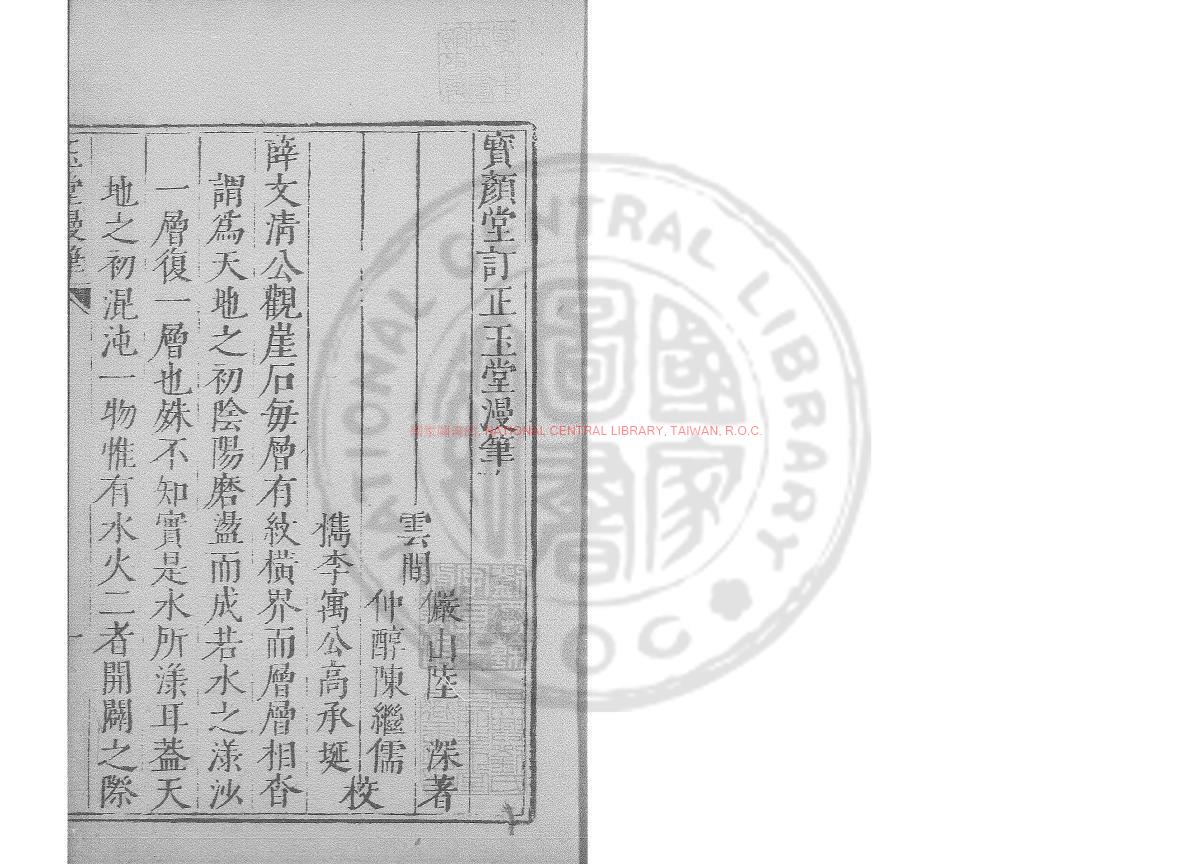 寶顏堂訂正玉堂漫筆
雲間 儼山陸 深著
仲醇陳繼儒
檇李寓公高承埏 校
薛文清公觀崖石每層有紋橫界而層層相沓
謂為天地之初陰陽磨盪而成若水之漾沙
一層復一層也殊不知實是水所漾耳葢天
地之初混沌一物惟有水火二者開闢之際
玉堂漫筆
一
國家圖書館, NATIONAL CENTRAL LIBRARY, TAIWAN, R.O.C.
NATIONAL CENTRAL LIBRARY
ROC